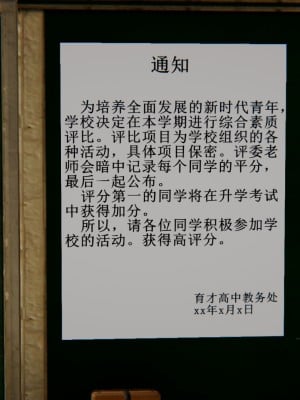 通知
为培养全面发展的新时代青年，
学校决定在本学期进行综合素质
评比。评比项目为学校组织的各
种活动，具体项目保密。评委老
师会暗中记录每个同学的平分，
最后一起公布。
评分第一的同学将在升学考试
中获得加分。
所以，请各位同学积极参加学
校的活动。获得高评分。
育才高中教务处
xx年x月x日